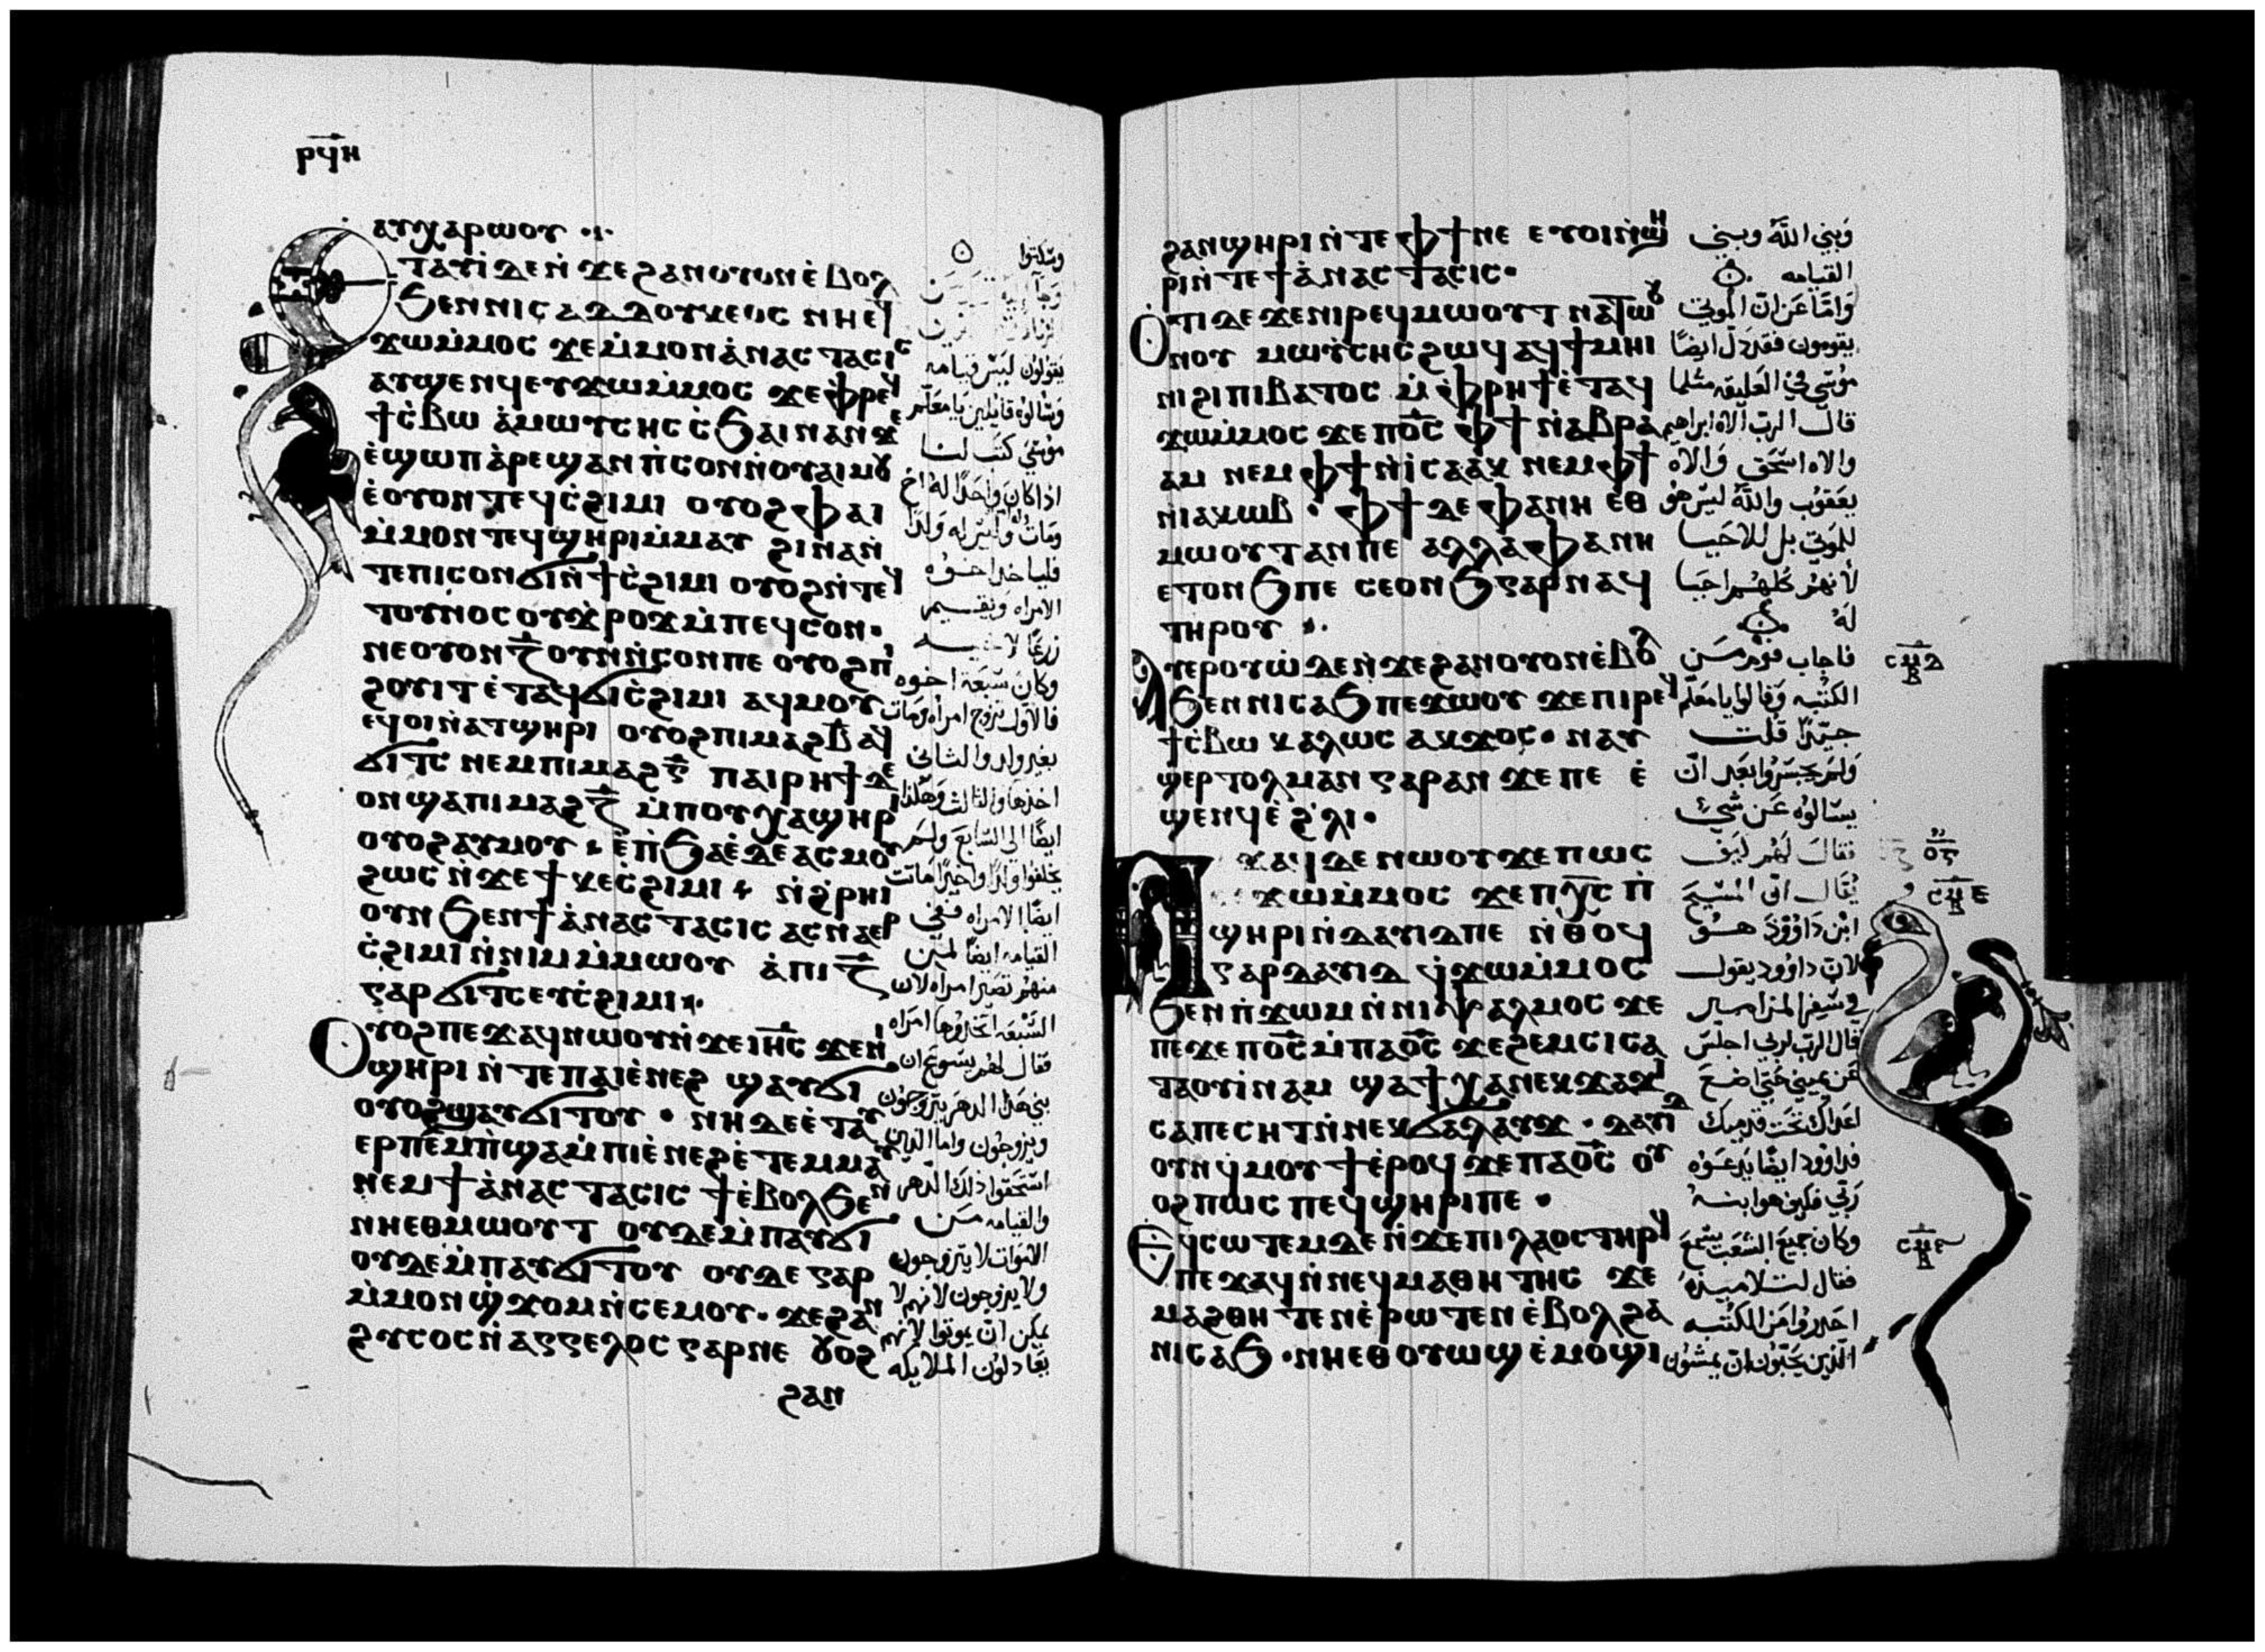 ⲣϥⲏ
ⲁⲩⲭⲁⲣⲱⲟⲩ
ⲉⲧⲁⲩⲓ̀ ⲇⲉ ⲛ̀ϫⲉ ϩⲁⲛⲟⲩⲟⲛ ⲉ̀ⲃⲟⲗ
ϧⲉⲛ ⲛⲓⲥⲁⲇⲇⲟⲩⲕⲉⲟⲥ ⲛⲏⲉⲧ
ϫⲱⲙ̀ⲙⲟⲥ ϫⲉ ⲙ̀ⲙⲟⲛ ⲁ̀ⲛⲁⲥⲧⲁⲥⲓⲥ
ⲁⲩϣⲉⲛϥ ⲉⲩϫⲱⲙ̀ⲙⲟⲥ ϫⲉ ⲫⲣⲉϥ
ϯⲥ̀ⲃⲱ ⲁ̀ⲙⲱⲩⲥⲏⲥ ⲥ̀ϧⲁⲓ ⲛⲁⲛ ϫⲉ
ⲉ̀ϣⲱⲡ ⲁ̀ⲣⲉϣⲁⲛ ⲡ̀ⲥⲟⲛ ⲛ̀ⲟⲩⲁⲓ ⲙⲟⲩ
ⲉ̀ⲟⲩⲟⲛⲧⲉϥ ⲥ̀ϩⲓⲙⲓ ⲟⲩⲟϩ ⲫⲁⲓ
ⲙ̀ⲙⲟⲛⲧⲉϥ ϣⲏⲣⲓ ⲙ̀ⲙⲁⲩ ϩⲓⲛⲁ ⲛ̀
ⲧⲉ ⲡⲓⲥⲟⲛ ϭⲓ ⲛ̀ϯⲥ̀ϩⲓⲙⲓ ⲟⲩⲟϩ ⲛ̀ⲧⲉϥ
ⲧⲟⲩⲛⲟⲥ ⲟⲩϫ̀ⲣⲟϫ ⲙ̀ⲡⲉϥⲥⲟⲛ·
ⲛⲉ ⲟⲩⲟⲛ ⲍ̅ ⲟⲩⲛ ⲛ̀ⲥⲟⲛ ⲡⲉ ⲟⲩⲟϩ ⲡⲓ
ϩⲟⲩⲓⲧ ⲉ̀ⲧⲁϥϭⲓ ⲥ̀ϩⲓⲙⲓ ⲁϥⲙⲟⲩ
ⲉϥⲟⲓ ⲛ̀ⲁⲧϣⲏⲣⲓ ⲟⲩⲟϩ ⲡⲓⲙⲁϩⲃ̅ ⲁϥ
ϭⲓⲧⲥ ⲛⲉⲙ ⲡⲓⲙⲁϩⲅ̅ ⲡⲁⲓⲣⲏϯ ⲇⲉ
ⲟⲛ ϣⲁ ⲡⲓⲙⲁϩⲍ̅ ⲙ̀ⲡⲟⲩⲭⲁϣⲏⲣⲓ
ⲟⲩⲟϩ ⲁⲩⲙⲟⲩ ⲉ̀ⲡ̀ϧⲁⲉ̀ ⲇⲉ ⲁⲥⲙⲟⲩ
ϩⲱⲥ ⲛ̀ϫⲉ ϯⲕⲉⲥ̀ϩⲓⲙⲓ ⲛ̀ϩ̀ⲣⲏⲓ
ⲟⲩⲛ ϧⲉⲛ ϯⲁ̀ⲛⲁⲥⲧⲁⲥⲓⲥ ⲁⲥⲛⲁⲉⲣ
ⲥ̀ϩⲓⲙⲓ ⲛ̀ⲛⲓⲙ ⲙ̀ⲙⲱⲟⲩ ⲁ̀ ⲡⲓⲍ̅
ⲅⲁⲣ ϭⲓⲧⲥ ⲉⲩⲥ̀ϩⲓⲙⲓ
ⲟⲩⲟϩ ⲡⲉϫⲁϥ ⲛⲱⲟⲩ ⲛ̀ϫⲉ ⲓⲏ̅ⲥ̅ ϫⲉ ⲛⲓ
ϣⲏⲣⲓ ⲛ̀ⲧⲉ ⲡⲁⲓⲉ̀ⲛⲉϩ ϣⲁⲩϭⲓ
ⲟⲩⲟϩ ϣⲁⲩϭⲓⲧⲟⲩ · ⲛⲏ ⲇⲉ ⲉ̀ⲧⲁⲩ
ⲉⲣⲡⲉⲙⲡ̀ϣⲁ ⲙ̀ⲡⲓⲉ̀ⲛⲉϩ ⲉ̀ⲧⲉⲙⲙⲁⲩ
ⲛⲉⲙ ϯⲁ̀ⲛⲁⲥⲧⲁⲥⲓⲥ ϯⲉ̀ⲃⲟⲗ ϧⲉⲛ
ⲛⲏⲉⲑⲙⲱⲟⲩⲧ ⲟⲩⲇⲉ ⲙ̀ⲡⲁⲩϭⲓ
ⲟⲩⲇⲉ ⲙ̀ⲡⲁⲩϭⲓⲧⲟⲩ ⲟⲩⲇⲉ ⲅⲁⲣ
ⲙ̀ⲙⲟⲛ ϣ̀ϫⲟⲙ ⲛ̀ⲥⲉⲙⲟⲩ · ϫⲉ ϩⲁⲛ
ϩⲩⲥⲟⲥ ⲛ̀ⲁⲅⲅⲉⲗⲟⲥ ⲅⲁⲣ ⲛⲉ ⲟⲩⲟϩ
ϩⲁⲛ
وسكتوا
يقولون ليس قيامه
وسالوه قايلين يا معلم
موسى كتب لنا
اذا كان واحدا له اخ
ومات وليس له ولدا
فلياخذ اخوه
الامراه ويقيم
زرعا لاخيه
وكان سبعة اخوه
فالاول تزوج امراه ومات
بغير ولد والثاني
اخذها والثالث وهكذا
ايضا الى السابع ولم
يخلفوا ولدا واخيرا ماتت
ايضا الامراه ففي
القيامه ايضا لمن
منهم تصير امراه لان
السبعه اتخذوها امراه
فقال لهم يسوع ان
بني هذا الدهر يتزوجون
ويزوجون واما الذين
استحقوا ذلك الدهر
والقيامه من
الاموات لا يتزوجون
ولا يزوجون لانهم لا
يمكن ان يموتوا لانهم
يعادلون الملايكه
ϩⲁⲛϣⲏⲣⲓ ⲛ̀ⲧⲉ ⲫϯ ⲛⲉ ⲉⲩⲟⲓ ⲛ̀ϣⲏ
ⲣⲓ ⲛ̀ⲧⲉ ϯⲁ̀ⲛⲁⲥⲧⲁⲥⲓⲥ·
ⲟⲧⲓ ⲇⲉ ϫⲉ ⲛⲓⲣⲉϥⲙⲱⲟⲩⲧ ⲛⲁⲧⲱⲟⲩ
ⲛⲟⲩ ⲙⲱⲩⲥⲏⲥ ϩⲱϥ ⲁϥϯⲙⲏⲓⲛⲓ
ϩⲓ ⲡⲓⲃⲁⲧⲟⲥ ⲙ̀ⲫⲣⲏϯ ⲉ̀ⲧⲁϥ
ϫⲱⲙ̀ⲙⲟⲥ ϫⲉ ⲡⲟ̅ⲥ̅ ⲫϯ ⲛ̀ⲁⲃⲣⲁ
ⲁⲙ ⲛⲉⲙ ⲫϯ ⲛ̀ⲓⲥⲁⲁⲕ ⲛⲉⲙ ⲫϯ
ⲛ̀ⲓⲁⲕⲱⲃ · ⲫϯ ⲇⲉ ⲫⲁ ⲛⲏ ⲉⲑ
ⲙⲱⲟⲩⲧ ⲁⲛ ⲡⲉ ⲁⲗⲗⲁ ⲫⲁ ⲛⲏ
ⲉⲧⲟⲛϧ ⲡⲉ ⲥⲉⲟⲛϧ ⲅⲁⲣ ⲛⲁϥ
ⲧⲏⲣⲟⲩ
ⲁⲩⲉⲣⲟⲩⲱ̀ ⲇⲉ ⲛ̀ϫⲉ ϩⲁⲛⲟⲩⲟⲛ ⲉ̀ⲃⲟⲗ
ϧⲉⲛ ⲛⲓⲥⲁϧ ⲡⲉϫⲱⲟⲩ ϫⲉ ⲡⲓⲣⲉϥ
ϯⲥ̀ⲃⲱ ⲕⲁⲗⲱⲥ ⲁⲕϫⲟⲥ · ⲛⲁⲩ
ϣ̀ⲉⲣⲧⲟⲗⲙⲁⲛ ⲅⲁⲣ ⲁⲛ ϫⲉ ⲡⲉ ⲉ̀
ϣⲉⲛϥ ⲉ̀ϩ̀ⲗⲓ ·
ⲡⲉϫⲁϥ ⲇⲉ ⲛⲱⲟⲩ ϫⲉ ⲡⲱⲥ
ϫⲱⲙ̀ⲙⲟⲥ ϫⲉ ⲡⲭ̅ⲥ̅ ⲡ̀
ϣⲏⲣⲓ ⲛ̀ⲇⲁⲩⲓⲇ ⲡⲉ ⲛ̀ⲑⲟϥ
ⲅⲁⲣ ⲇⲁⲩⲓⲇ ϥ̀ϫⲱⲙ̀ⲙⲟⲥ
ϧⲉⲛ ⲡ̀ϫⲱⲙ ⲛ̀ⲛⲓⲯⲁⲗⲙⲟⲥ ϫⲉ
ⲡⲉϫⲉ ⲡⲟ̅ⲥ̅ ⲙ̀ⲡⲁⲟ̅ⲥ̅ ϫⲉ ϩⲉⲙⲥⲓ ⲥⲁ
ⲧⲁⲟⲩⲓ̀ⲛⲁⲙ ϣⲁϯⲭⲁ ⲛⲉⲕϫⲁϫⲓ
ⲥⲁⲡⲉⲥⲏⲧ ⲛ̀ⲛⲉⲕϭⲁⲗⲁⲩϫ · ⲇⲁⲩⲓⲇ
ⲟⲩⲛ ϥ̀ⲙⲟⲩϯ ⲉ̀ⲣⲟϥ ϫⲉ ⲡⲁⲟ̅ⲥ̅ ⲟⲩ
ⲟϩ ⲡⲱⲥ ⲡⲉϥϣⲏⲣⲓ ⲡⲉ ·
ⲉϥⲥⲱⲧⲉⲙ ⲇⲉ ⲛ̀ϫⲉ ⲡⲓⲗⲁⲟⲥ ⲧⲏⲣϥ
ⲡⲉϫⲁϥ ⲛ̀ⲛⲉϥⲙⲁⲑⲏⲧⲏⲥ ϫⲉ
ⲙⲁϩⲑⲏⲧⲉⲛ ⲉ̀ⲣⲱⲧⲉⲛ ⲉ̀ⲃⲟⲗ ϩⲁ
ⲛⲓⲥⲁϧ · ⲛⲏⲉⲑⲟⲩⲱϣ ⲉ̀ⲙⲟϣⲓ
وبني الله وبني
القيامه
واما عن ان الموتى
يقومون فقد دل ايضا
موسى في العليقه مثلما
قال الرب الاه ابراهيم
والاه اسحق والاه
يعقوب والله ليس هو
للموتى بل للاحيا
لانهم كلهم احيا
له
فاجاب قوم من
الكتبه وقالوا يا معلم
جيدا قلت
ولم يجسروا بعد ان
يسالوه عن شي
فقال لهم كيف
يقال ان المسيح
ابن داوود هو
لان داوود يقول
في سفر المزامير
قال الرب لربي اجلس
عن يميني حتى اضع
اعداك تحت قدميك
فداوود ايضا يدعوه
ربي فكيف هو ابنه
وكان جميع الشعب يسمع
فقال لتلاميذه
احذروا من الكتبه
الذين يحبون ان يمشون
ⲥⲙⲇ
ⲟⲅ
ⲥⲙⲉ
ⲥⲙⲋ